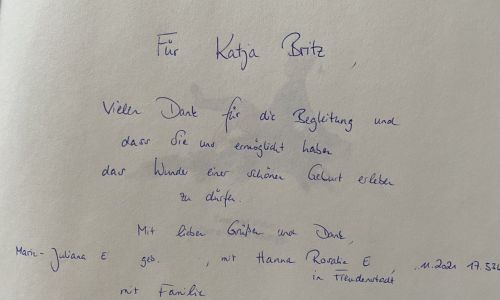 Für Katja Britz,
Vielen Dank für die Begleitung und
dass Sie uns ermöglicht haben
das Wunder einer schönen Geburt erleben
zu dürfen.
Mit lieben Grüßen und Dank,
Marie-Juliana E geb. , mit Hanna Rosalie E, .11.2021 17.53
in Freudenstadt
mit Familie